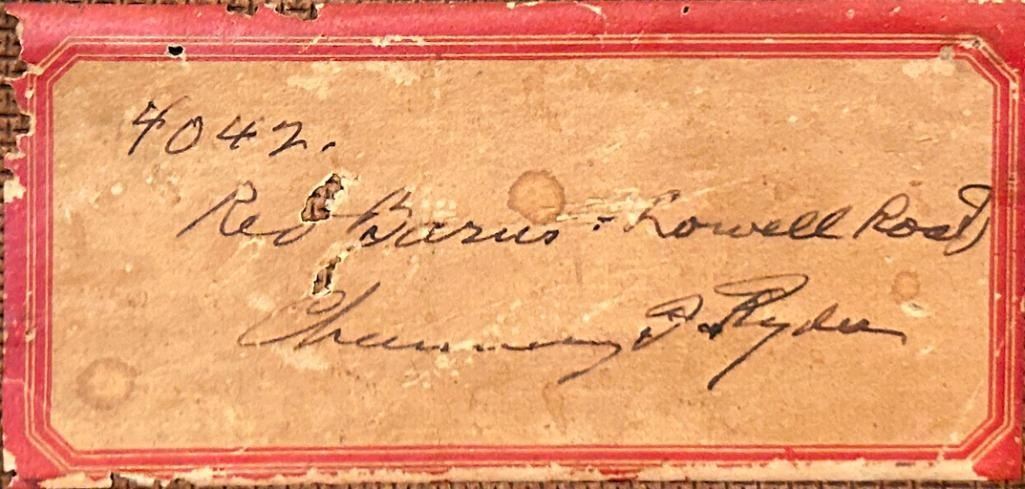 4042.
Red Barns - Lowell Road
Chauncey F. Ryder